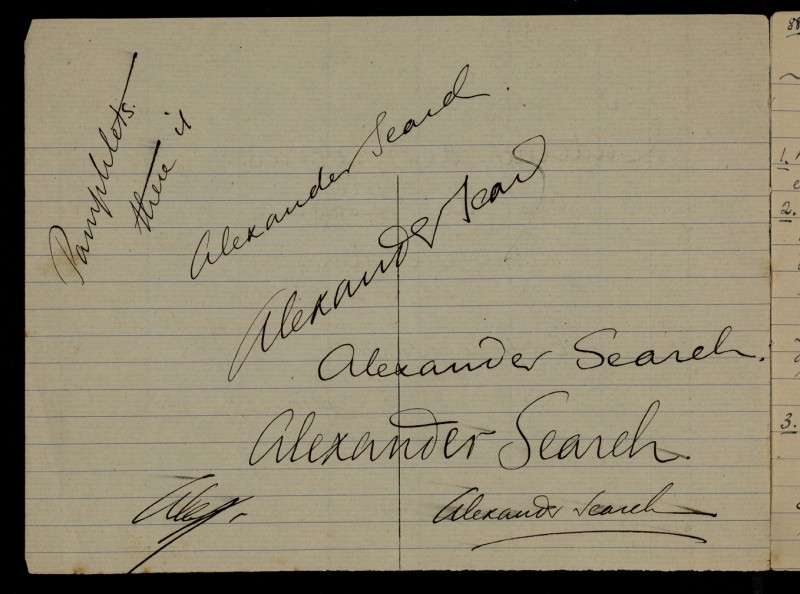 Pamphlets.
there is
Alexander Search.
Alexander Search
Alexander Search.
Alexander Search.
Alex.
Alexander Search
88
1.
2.
3.